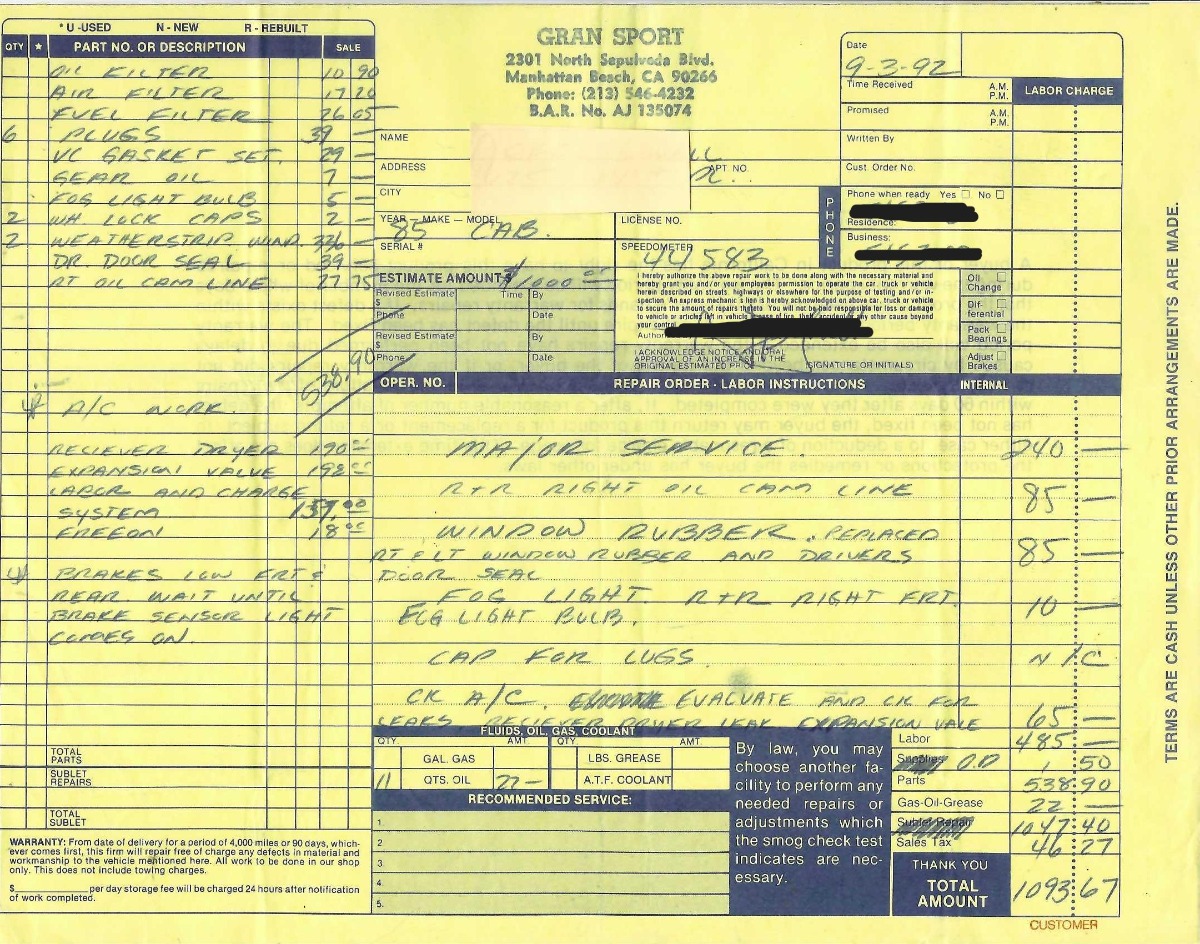 *U-USED N-NEW R-REBUILT
QTY * PART NO. OR DESCRIPTION SALE
OIL FILTER 10 90
AIR FILTER 17 20
FUEL FILTER 26 05
6 PLUGS 39 —
VC GASKET SET. 29 —
GEAR OIL 7 —
FOG LIGHT BULB 5 —
2 WH LOCK CAPS 2 —
2 WEATHERSTRIP WIND. —
DR. DOOR SEAL 39 —
RT OIL CAM LINE 27 75
538.90
A/C WORK.
RECIEVER DRYER 190 00
EXPANSION VALVE
LABOR AND CHARGE
SYSTEM 00
FREEON 18 00
BRAKES LOW FRT &
REAR. WAIT UNTIL
BRAKE SENSOR LIGHT
COMES ON.
TOTAL PARTS
SUBLET REPAIRS
TOTAL SUBLET
WARRANTY: From date of delivery for a period of 4,000 miles or 90 days, which-
ever comes first, this firm will repair free of charge any defects in material and
workmanship to the vehicle mentioned here. All work to be done in our shop
only. This does not include towing charges.
$ per day storage fee will be charged 24 hours after notification
of work completed.
GRAN SPORT
2301 North Sepulveda Blvd.
Manhattan Beach, CA 90266
Phone: (213) 546-4232
B.A.R. No. AJ 135074
NAME
ADDRESS APT NO.
CITY
YEAR — MAKE — MODEL
85 CAB.
LICENSE NO.
SERIAL #
SPEEDOMETER
44583
ESTIMATE AMOUNT $ 1000 00
Revised Estimate $ Time By
Phone Date
Revised Estimate $ By
Phone Date
I hereby authorize the above repair work to be done along with the necessary material and
hereby grant you and/or your employees permission to operate the car, truck or vehicle
herein described on streets, highways or elsewhere for the purpose of testing and/or in-
spection. An express mechanic's lien is hereby acknowledged on above car, truck or vehicle
to secure the amount of repairs thereto. You will not be held responsible for loss or damage
to vehicle or articles left in vehicle in case of fire, theft, accident or any other cause beyond
your control.
I ACKNOWLEDGE NOTICE AND ORAL
APPROVAL OF AN INCREASE IN THE
ORIGINAL ESTIMATED PRICE (SIGNATURE OR INITIALS)
Date
9-3-92
Time Received A.M. P.M.
LABOR CHARGE
Promised A.M. P.M.
Written By
Cust. Order No.
PHONE
Phone when ready Yes No
Residence:
Business:
Oil Change
Differential
Pack Bearings
Adjust Brakes
OPER. NO. REPAIR ORDER - LABOR INSTRUCTIONS INTERNAL
MAJOR SERVICE. 240 —
R+R RIGHT OIL CAM LINE 85 —
WINDOW RUBBER. REPLACED
RT & LT WINDOW RUBBER AND DRIVERS 85 —
DOOR SEAL
FOG LIGHT. R+R RIGHT FRT. 10 —
FOG LIGHT BULB.
CAP FOR LUGS. N/C
CK A/C. EVACUATE AND CK FOR
LEAKS RECIEVER DRYER LEAK EXPANSION VALE 65 —
FLUIDS, OIL, GAS, COOLANT
QTY. AMT. QTY. AMT.
GAL. GAS LBS. GREASE
11 QTS. OIL 22 — A.T.F. COOLANT
RECOMMENDED SERVICE:
1.
2
3.
4.
5.
By law, you may
choose another fa-
cility to perform any
needed repairs or
adjustments which
the smog check test
indicates are nec-
essary.
Labor 485 —
Supplies O.D 1 50
Parts 538 90
Gas-Oil-Grease 22 —
Sublet Repair 1047 40
Sales Tax 46 27
THANK YOU
TOTAL AMOUNT 1093.67
CUSTOMER
TERMS ARE CASH UNLESS OTHER PRIOR ARRANGEMENTS ARE MADE.